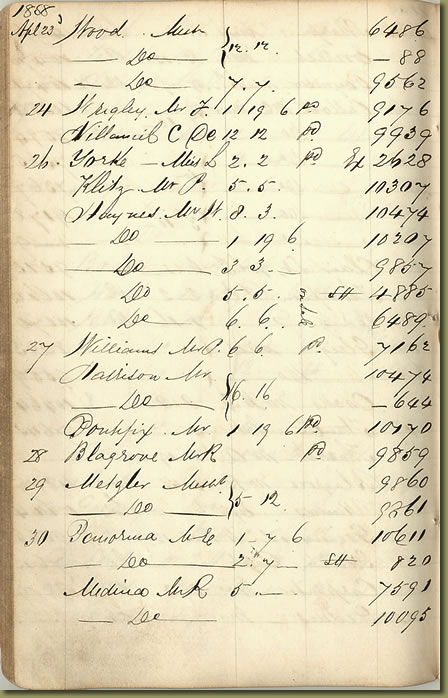 1868
Apl 23 Wood. Mess 6486
— Do — } 12. 12. — 88
— Do 7. 7. 9562
24 Wrigley. Mr J. 1 19 6 pd 9176
C Do 12 12 pd 9939
26. Yorke — Miss L 2. 2 pd 2928
Klitz. Mr P. 5. 5. 10307
Haynes. Mr W. 8. 3. 10474
— Do — 1 19 6 10207
— Do — 3 3. — 9857
Do 5. 5. on sale SH 4885
— Do — 6. 6. 6489
27 Williams Mr P. 6 6. pd. 7162
Harrison Mr 10474
— Do } 16. 16 — 644
Mr 1 19 6 pd 10170
28 Blagrove Mr R pd 9859
29 Metzler Mess 9860
— Do — } 5 12. 9861
30 1 — 7 6 10611
— Do — 2. 7 — SH 820
Medina Mr R 5 — 7591
— Do — 10095